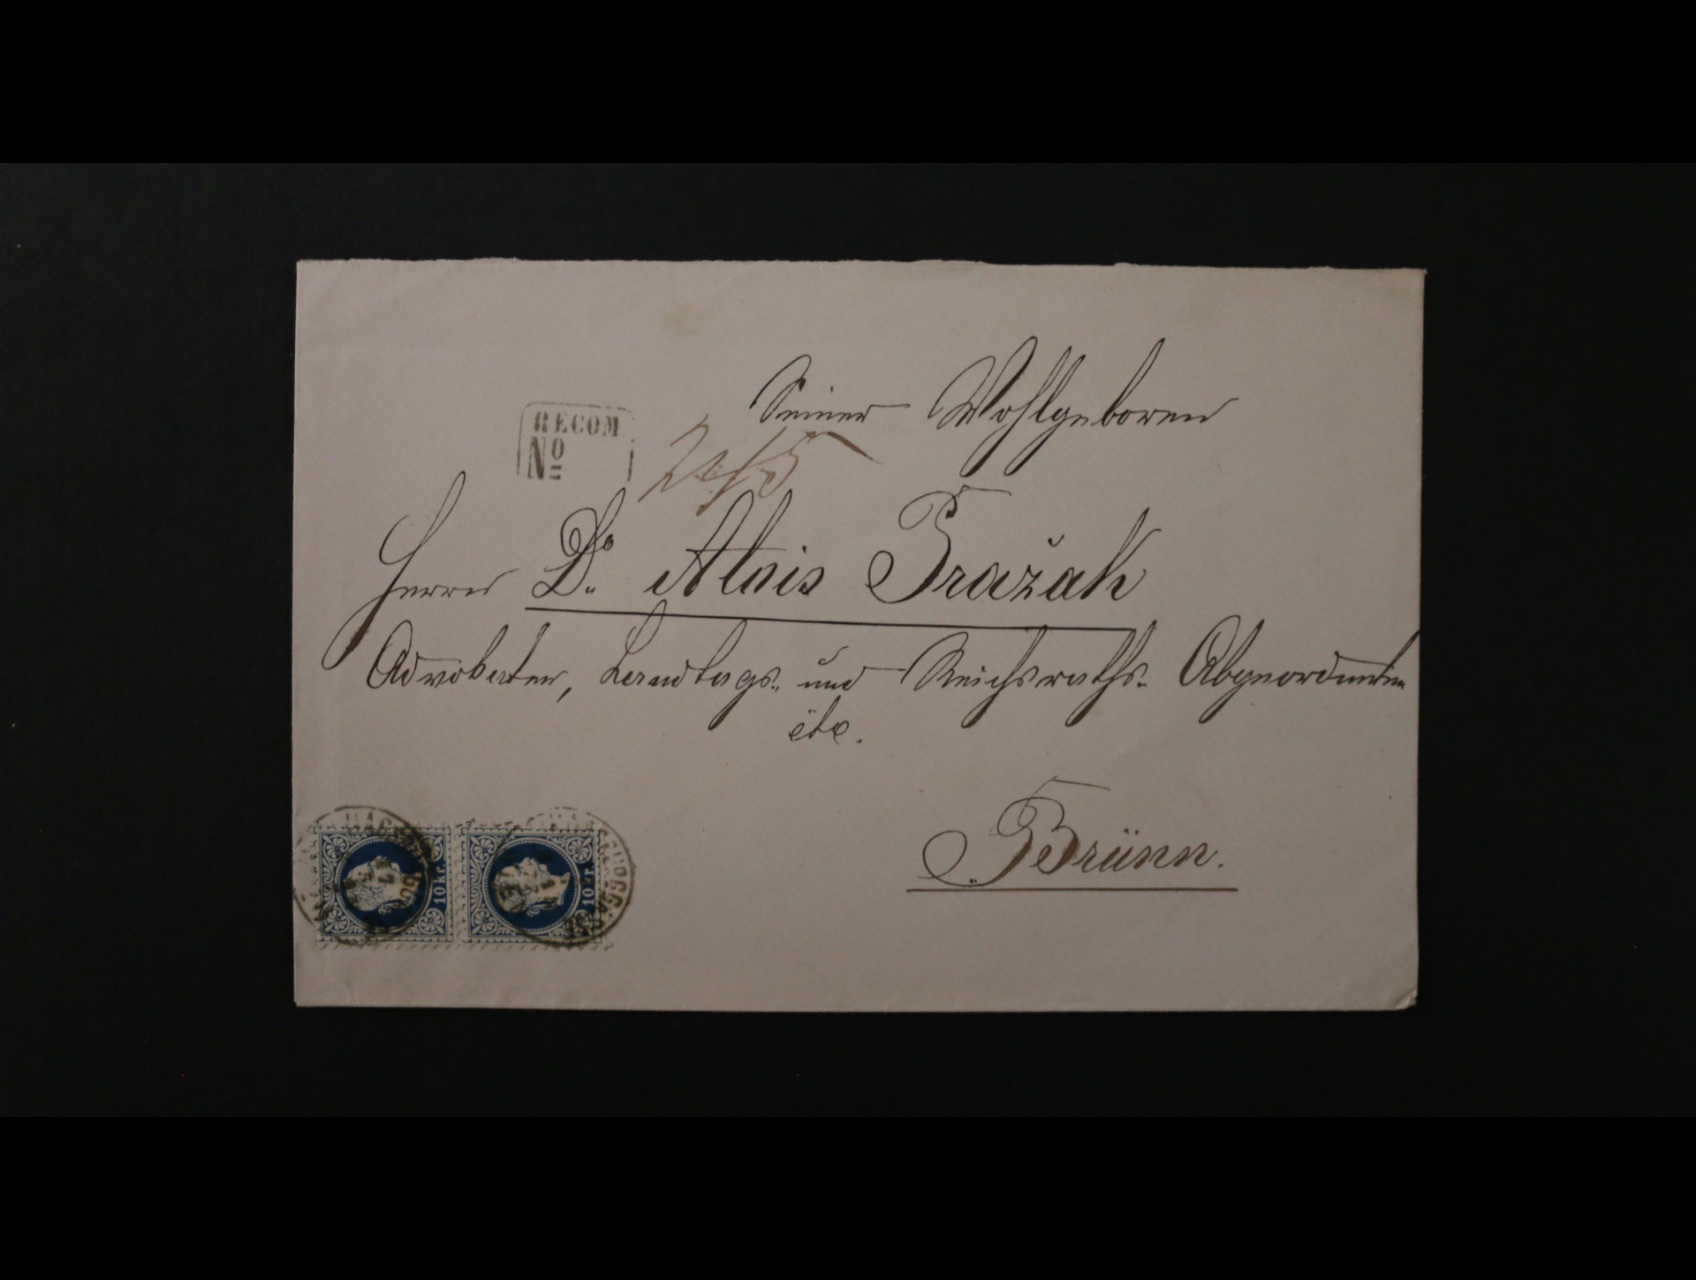 Seiner Wohlgeboren
RECOM
No
Herrn Dr. Alois Pražák
Advokaten, Landtags- und Reichsraths-Abgeordneten
etc.
Brünn.
10 kr.
10 kr.